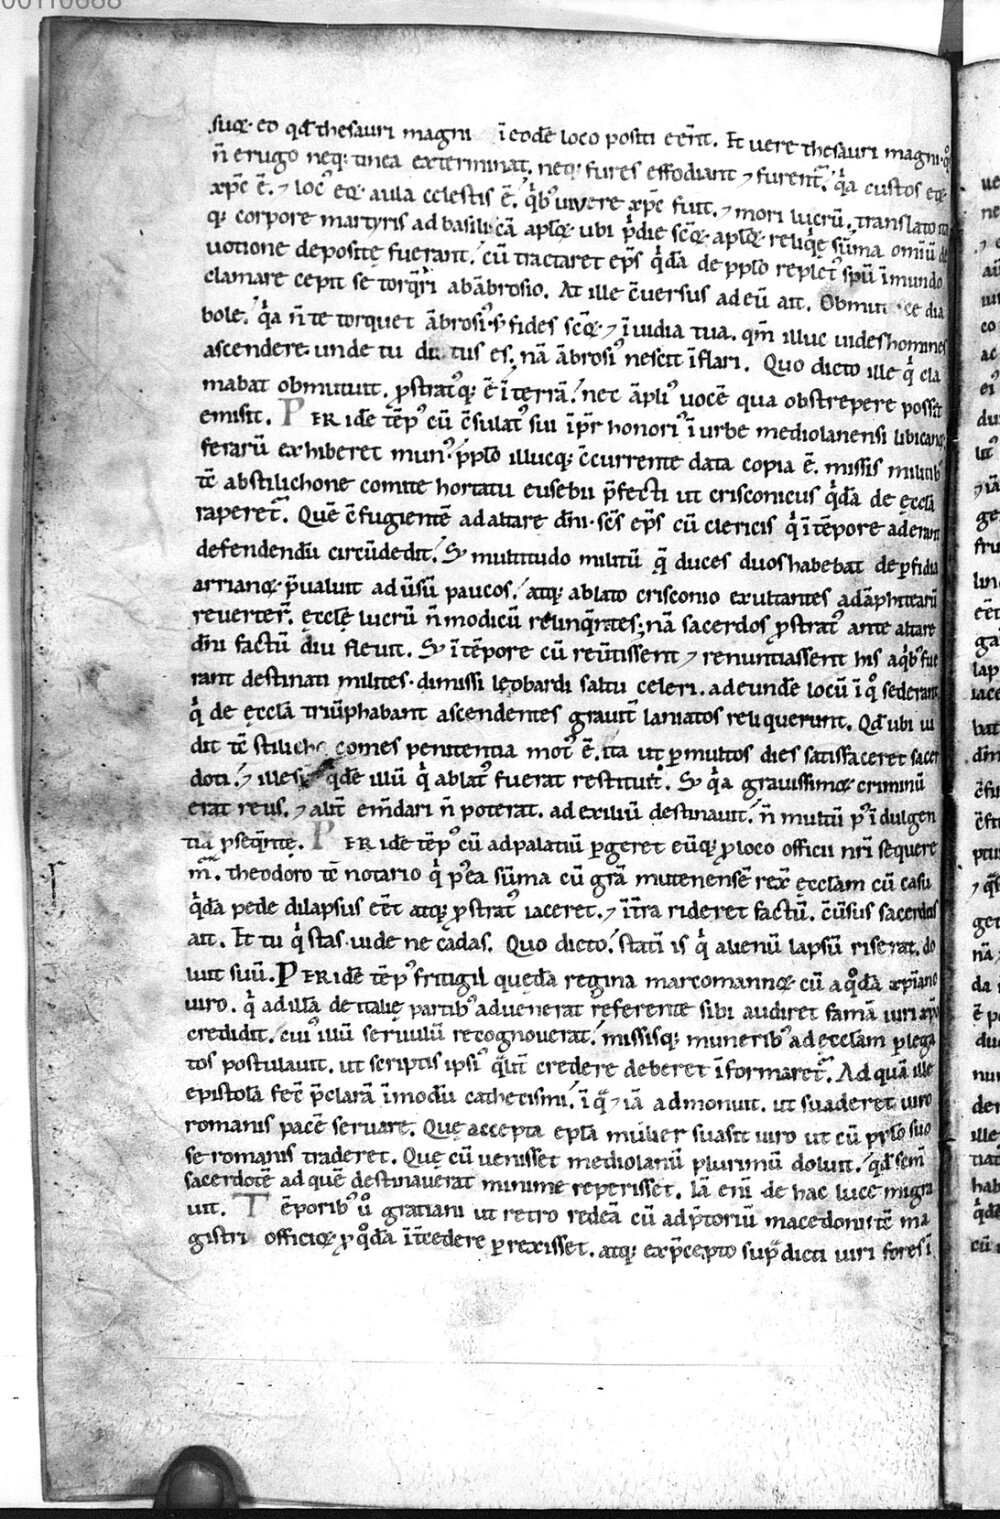 suꝙ· eo qđ thesauri magni ĩ eodē loco positi eẽnt. Et uere thesauri magni· q̊s
ñ erugo neq; tinea exterminat, neq; fures effodiunt ⁊ furent᷑. q̓a custos eoꝝ
xp̄c ē. ⁊ loc᷒ eoꝝ aula celestis ē. q̓b᷒ uiuere xp̄c fuit. ⁊ mori lucrū. translato ita
q; corpore martyris ad basilicā aplo̧ꝝ ubi p̓die scōꝝ aploꝝ reliq̇ę sūma omiũ de
uotione depositę fuerant. cū tractaret ep̄s q̓dā de pplo replet᷒ spū ĩmundo
clamare cepit se torq̄ri ab ābrosio. At ille ōuersus ad eū ait. Obmutesce dia
bole. q̓a ñ te torquet ābrosi᷒ ꝫ fides scōꝝ ⁊ ĩuidia tua. qm̄ illuc uides homines
ascendere unde tu dei᷑tus es. nā ābrosi᷒ nescit ĩflari. Quo dicto ille q̓ cla
mabat obmutuit. ꝓstrat᷒q; ē ĩ terrā. nec āpli᷒ uocē qua obstrepere posset
emisit. PER idē tēp᷒ cū ōsulat᷒ sui ĩpr honori᷒ ĩ urbe mediolanensi libicarū
ferarū exhiberet mun᷒. pplo illucq; ōcurrente data copia ē. missis militib᷒
tc̄ abstilichone comite hortatu eusebii p̄fecti ut crisconicus q̓dā de ęcclā
raperet᷑. Quē ōfugientē ad altare dn̄i· scs̄ ep̄s cū clericis q̓ ĩ tēpore aderant
defendendū circūdedit. Sꝫ multitudo militū q̄ duces duos habebat de ꝑfidia
arrianoꝝ p̄ualuit ad ūsū paucos. atq; ablato crisconio exultantes ad āphiteatrū
reuerter̄. ęcclę lucrū ñ modicū relinq̄ntes; nā sacerdos ꝓstrat᷒ ante altare
dn̄i factū diu fleuit. Sꝫ ĩ tēpore cū reūtissent ⁊ renuntiassent his aq̓b᷒ fue
rant destinati milites· dimissi leobardi saltu celeri. ad eundē locū ĩ q̊ sederant
q̓ de ęcclā triūphabant ascendentes grauit̄ laniatos reliquerunt. Qđ ubi ui
dit tc̄ stilicho comes penitentia mot᷒ ē. ita ut ꝑ multos dies satisfaceret sacer
doti. ⁊ illesū q̓dē illū q̓ ablat᷒ fuerat restituit. Sꝫ q̓a grauissimoꝝ criminū
erat reus. ⁊ alit̄ em̄dari ñ poterat. ad exiliū destinauit. ñ multū p᷒ ĩdulgen
tia ꝓseq̄ntę. PER idē tēp᷒ cū ad palatiū ꝑgeret eūq; ꝓ loco officii nr̄i sequere
m᷑. theodoro tc̄ notario q̓ p᷒ea sūma cū grā mutenensē rex̄ ęcclam cū casu
q̓dā pede dilapsus eēt atq; ꝓstrat᷒ iaceret. ⁊ ĩt̄ra rideret factū. ōūsus sacerdos
ait. Et tu q̓ stas· uide ne cadas. Quo dicto. statī is q̓ alienū lapsū riserat. do
luit suū. PER idē tēp᷒ fritigil quędā regina marcomannoꝝ cū aq̊dā xp̄iano
uiro. q̓ ad illā de italię partib᷒ aduenerat referente sibi audiret famā uiri xp̄o
credidit. cui᷒ illū seruulū recognouerat. missisq; munerib᷒ ad ęcclam ꝑ lega
tos postulauit. ut scriptis ipsi᷒ q̓lit̄ credere deberet ĩformaret᷑. Ad quā ille
epistolā fec̄ p̄clarā ĩ modū cathecismi. ĩ q̄ ⁊ iā admonuit. ut suaderet uiro
romanis pacē seruare. Quę accepta ep̄la mulier suasit uiro ut cū pplo suo
se romanis traderet. Quę cū uenisset mediolanū plurimū doluit. qđ scm̄
sacerdotē ad quē destinauerat minime reperisset. Iā enī de hac luce migra
uit. Tēporib᷒ ů gratiani ut retro redeā cū ad p̄toriū macedonii tc̄ ma
gistri officioꝝ ꝓ q̊dā ĩt̄cedere ꝑrexisset. atq; ex p̄cepto sup̄dicti uiri fores ĩ